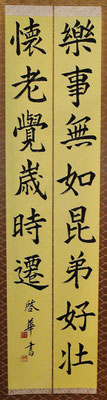 樂事無如昆弟好壯
懷老覺歲時遷
啓華書